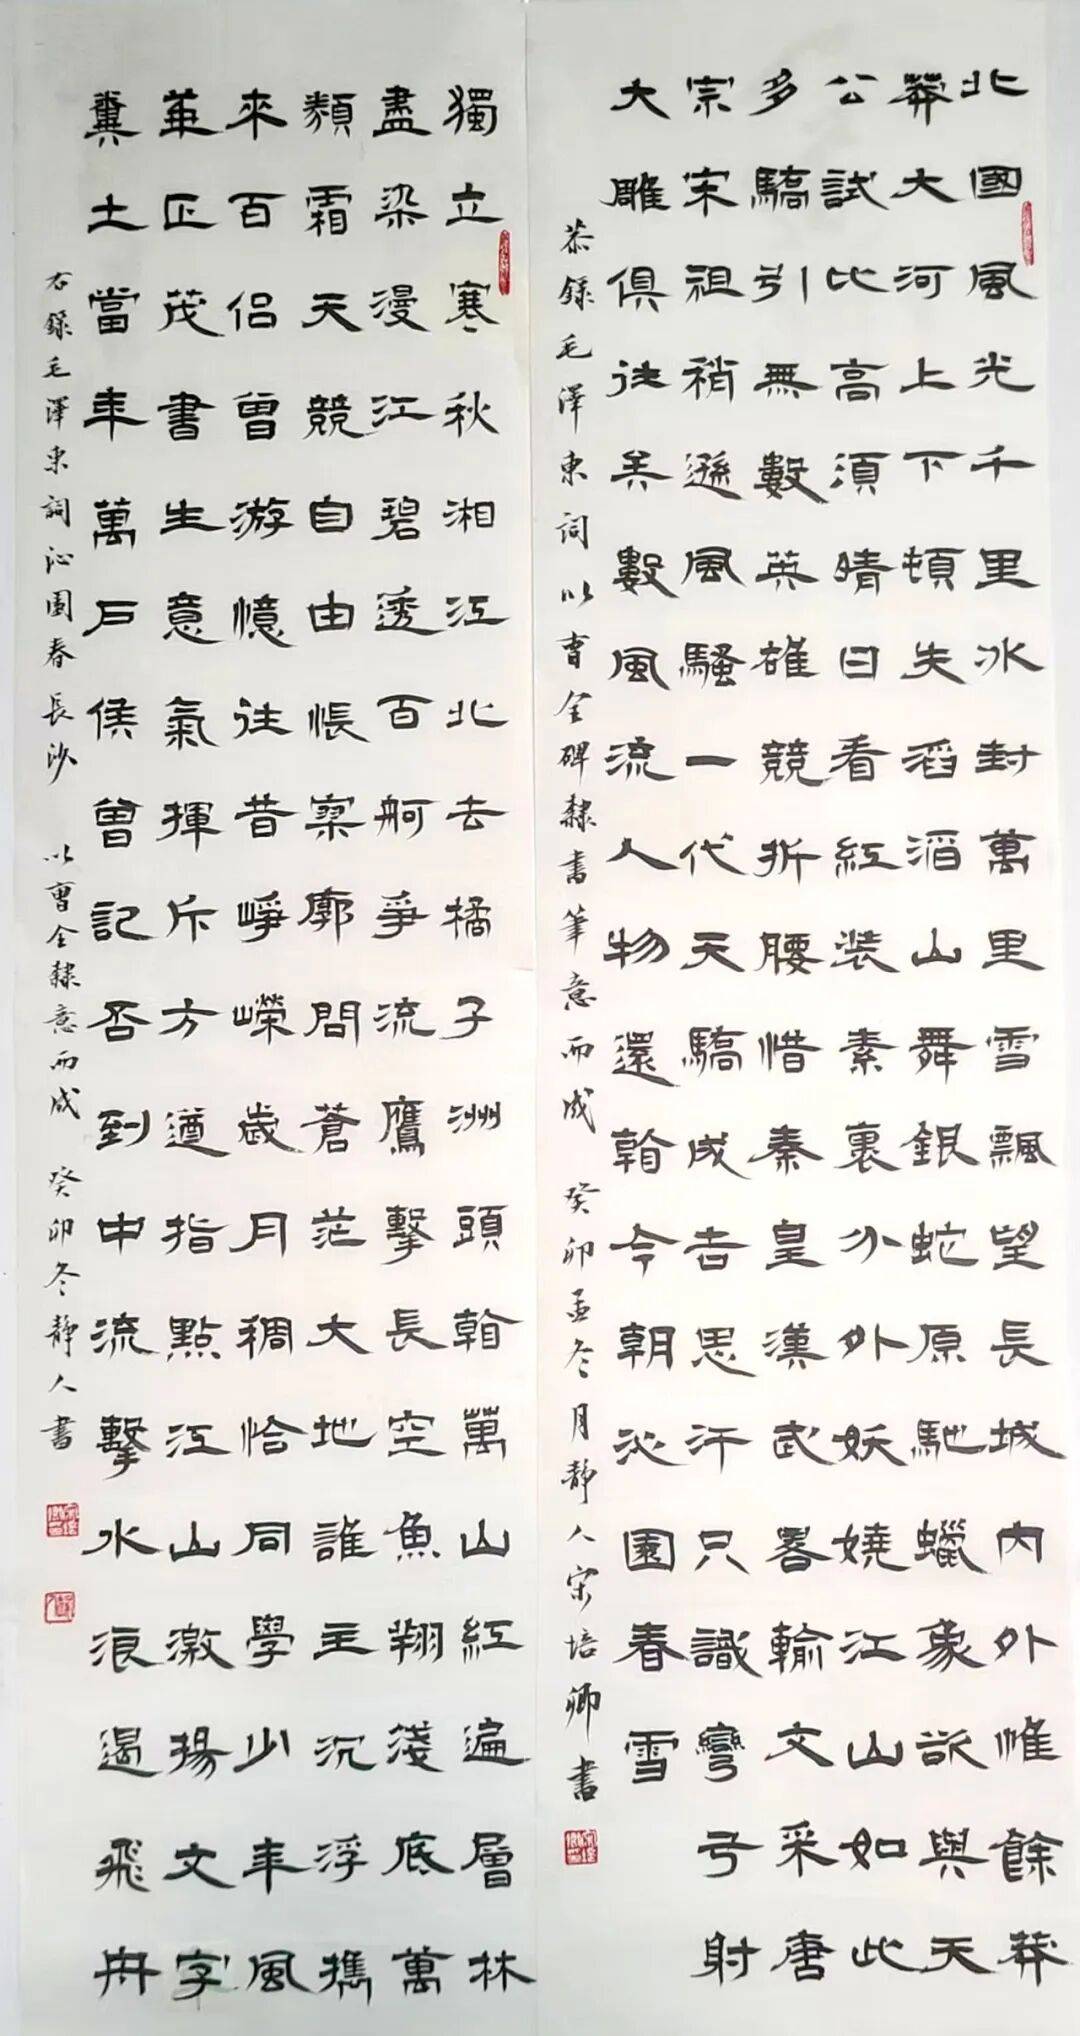 北國風光千里冰封萬里雪飄望長城內外惟餘莽
莽大河上下頓失滔滔山舞銀蛇原馳蠟象欲與天
公試比高須晴日看紅裝素裹分外妖嬈江山如此
多驕引無數英雄競折腰惜秦皇漢武畧輸文采唐
宗宋祖稍遜風騷一代天驕成吉思汗只識彎弓射
大雕俱往矣數風流人物還看今朝沁園春雪
恭錄毛澤東詞以曹全碑隸書筆意而成 癸卯孟冬月靜人宋培卿書
獨立寒秋湘江北去橘子洲頭看萬山紅遍層林
盡染漫江碧透百舸爭流鷹擊長空魚翔淺底萬
類霜天競自由悵寥廓問蒼茫大地誰主沉浮攜
來百侶曾游憶往昔崢嶸歲月稠恰同學少年風
華正茂書生意氣揮斥方遒指點江山激揚文字
糞土當年萬戶侯曾記否到中流擊水浪遏飛舟
右錄毛澤東詞沁園春長沙 以曹全隸意而成 癸卯冬靜人書